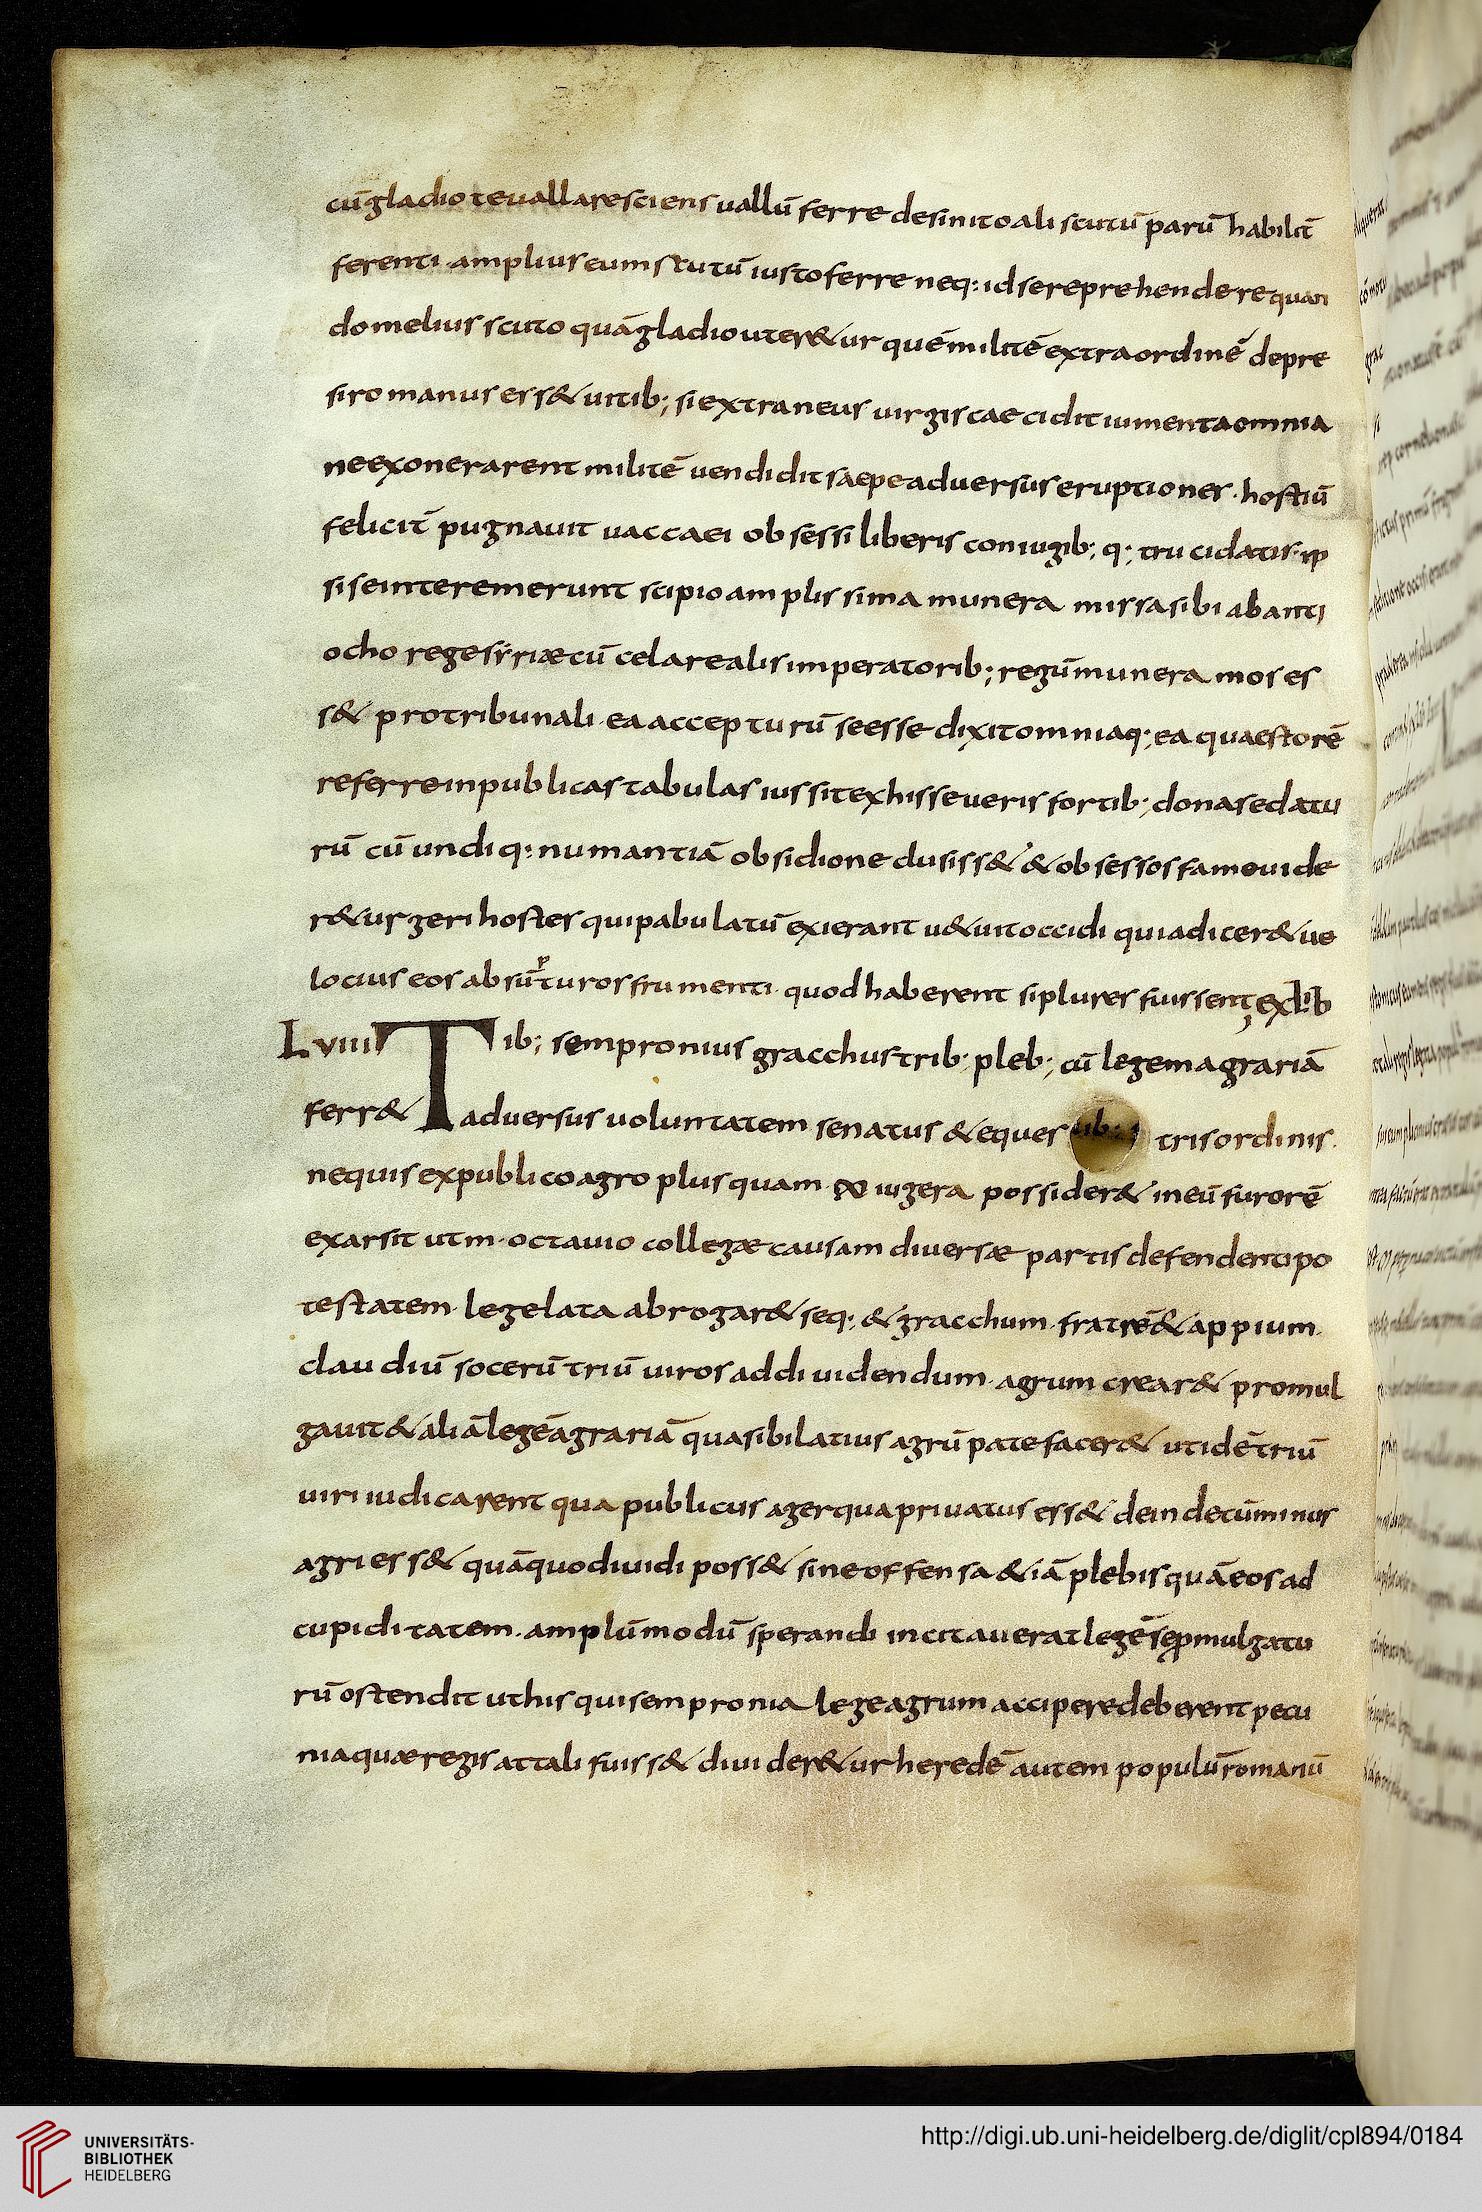 cū gladio te uallare sciens uallū ferre desinito ali scutū parū habilit̄
ferenti amplius eum scutū iusto ferre neq; id se reprehendere quan
do melius scuto quā gladio uteretur quē militē extra ordinē depre
si romanus esset uitib; si extraneus uirgis caecidit iumenta omnia
ne exonerarent militē uendidit saepe aduersus eruptiones · hostiū
felicit̄ pugnauit uaccaei obsessi liberis coniugib; q; trucidatis · ip
si se interemerunt scipio amplissima munera missa sibi ab anti
ocho rege syriæ cū celare alis imperatorib; regū munera mos es
s& pro tribunali · ea accepturū se esse dixit omniaq; ea quaestorē
referre in publicas tabulas iussit ex his se ueris fortib; dona se datu
rū cū undiq; numantiā obsidione dusiss& & obsessos fame uide
r& urgeri hostes qui pabulatū exierant u&uit occidi quia dicer& ue
locius eos absūpturos frumenti · quod haberent si plures fuissent ex lib
Lviii Tib; sempronius gracchus trib· pleb; cū legem agrariā
ferr& aduersus uoluntatem senatus & eques tris ordinis ·
nequis ex publico agro plus quam ∞ iugera possider& in eū furorē
exarsit ut m · octauio collegæ causam diuersæ partis defendenti po
testatem · lege lata abrogar& seq; & gracchum · fratrē & appium ·
claudiū socerū triū uiros ad diuidendum · agrum crear& promul
gauit & aliā legē agrariā qua sibi latius agrū patefacer& ut idē triū
uiri iudicarent qua publicus ager qua priuatus ess& dein de cū minus
agri ess& quā quo diuidi poss& sine offensa &iā plebis quā eos ad
cupiditatem · amplū modū sperandi incitauerat legē se p̄mulgatu
rū ostendit ut his qui sempronia lege agrum accipere deberent pecu
nia quæ regis attali fuiss& diuider&ur heredē autem populū romanū
UNIVERSITÄTS-
BIBLIOTHEK
HEIDELBERG
http://digi.ub.uni-heidelberg.de/diglit/cpl894/0184